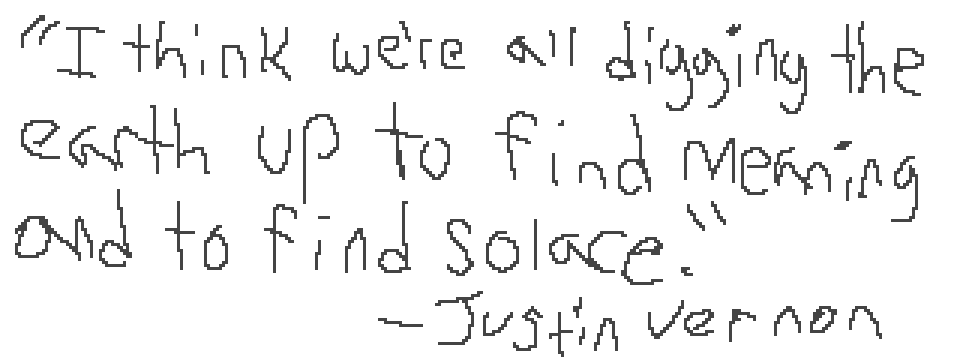 "I think we're all digging the
earth up to find Meaning
and to find solace."
-Justin Vernon